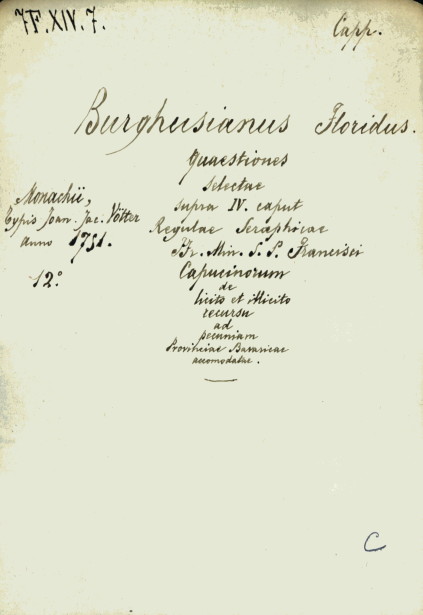 7F.XIV.7.
Capp.
Burghusianus Floridus.
Quaestiones
selectae
supra IV. caput
Regulae Seraphicae
Fr. Min. S. P. Francisci
Capucinorum
de
licito et illicito
recursu
ad
pecuniam
Provinciae Bavaricae
accomodatae.
Monachii,
Typis Joan. Jac. Vötter
anno 1751.
12°
C